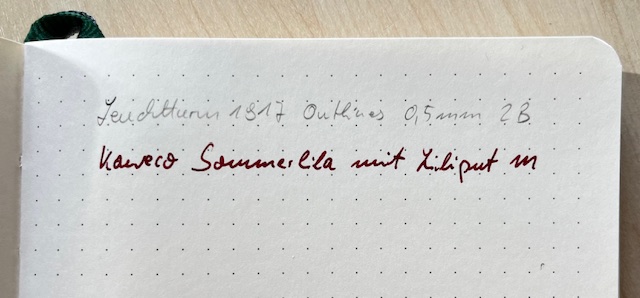 Leuchtturm 1917 Outlines 0,5mm 2B
Kaweco Sommerlila mit Liliput M